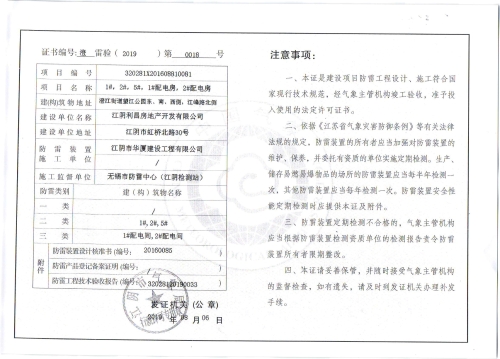 证书编号:澄 雷验 ( 2019 ) 第 0018 号
项目编号 320281X201608810081
项目名称 1#, 2#, 5#, 1#配电房, 2#配电房
建(构)筑物地址 澄江街道望江公园东、南、西侧, 江峰路北侧
建设单位名称 江阴利昌房地产开发有限公司
建设单位地址 江阴市虹桥北路30号
防雷装置施工单位 江阴市华厦建设工程有限公司
施工监督单位 无锡市防雷中心 (江阴检测站)
防雷类别 建 ( 构 ) 筑物名称
一类 /
二类 1#, 2#, 5#
三类 1#配电间, 2#配电间
附件
防雷装置设计核准书(编号: 20160085 )
防雷产品登记备案证明(编号: / )
防雷工程技术验收报告(编号: 32028120190033 )
发证机关 (公章)
2019 年 08 月 06 日
注意事项:
一、本证是建设项目防雷工程设计、施工符合国
家现行技术规范, 经气象主管机构竣工验收, 准予投
入使用的法定许可证书。
二、依据《江苏省气象灾害防御条例》等有关法律
法规的规定, 防雷装置的所有者应当加强对防雷装置的
维护、保养, 并委托有资质的单位实施定期检测。生产、
储存易燃易爆物品的场所的防雷装置应当每半年检测一
次, 其他防雷装置应当每年检测一次。防雷装置安全性
能定期检测对应提供本证及附件。
三、防雷装置定期检测不合格的, 气象主管机构
应当根据防雷装置检测资质单位的检测报告责令防雷
装置所有者限期整改。
四、本证请妥善保管, 并随时接受气象主管机构
的监督检查, 如有遗失, 请及时到发证机关办理补发
手续。